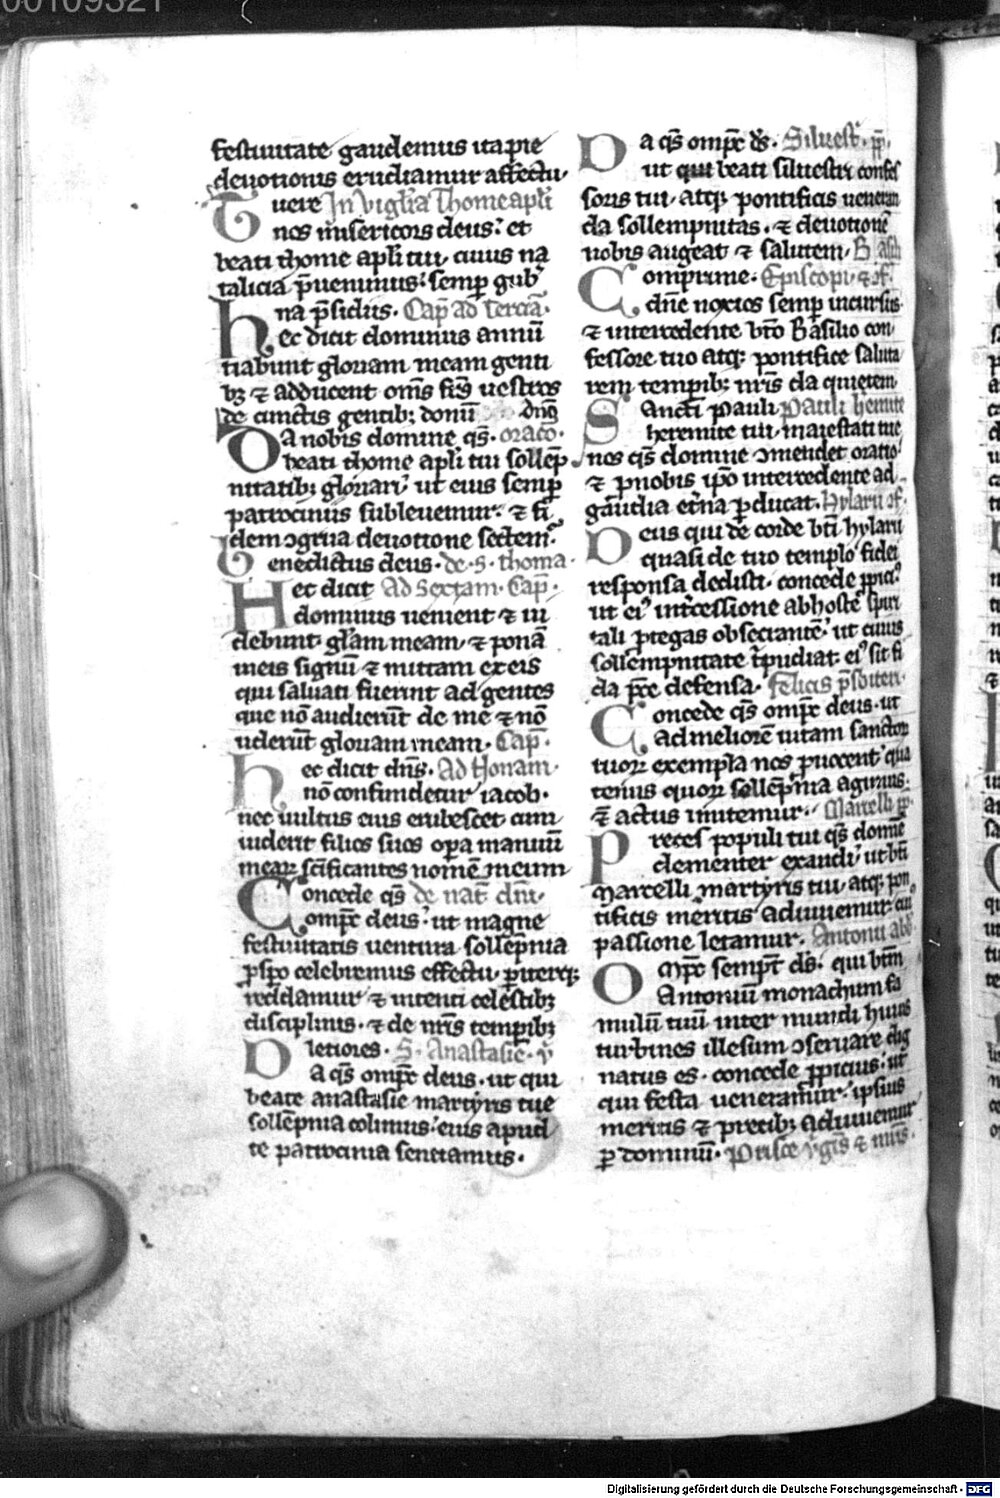 00109321
festiuitate gaudemus ita pie
deuotionis erudiamur affectu.
Tuere In vigl̄ia Thome apl̄i
nos misericors deus: et
beati thome apl̄i tui. cuius na
talicia p̄uenimus: semp̱ gub̓
na p̄sidiis. Cap̄ ad terciā.
hec dicit dominus annū
tiabunt gloriam meam genti
bꝫ ⁊ adducent om̄s fr̄s uestros
de cunctis gentibꝫ donū dn̄o
Da nobis domine qs̄. oracō.
beati thome apl̄i tui sollēp
nitatibꝫ gloriari ut eius semp̱
patrociniis subleuemur. ⁊ fi
dem ꝯgrua deuotione sectem̓.
Benedictus deus. de. s. thoma.
Hec dicit Ad Sextam. Cap̄.
dominus uenient ⁊ ui
debunt gl̄am meam. ⁊ ponā
in eis signū ⁊ mittam ex eis
qui saluati fuerint ad gentes
que nō audierūt de me ⁊ nō
uiderūt gloriam meam. Cap̄.
hec dicit dn̄s. Ad Nonam.
nō confundetur iacob.
nec uultus eius erubescet cum
uiderit filios suos oꝑa manuū
mearꝝ sc̄ificantes nomē meum
Concede qs̄ de nat̄ dn̄i.
omp̄c deus. ut magne
festiuitatis uentura sollēpnia
ꝓspo celebremus effectu. ꝑiterqꝫ
reddamur ⁊ intenti celestibꝫ
disciplinis. ⁊ de nr̄is temp̱ibꝫ
letiores. S. Anastasie. v̄
Da qs̄ omp̄c deus. ut qui
beate anastasie martyris tue
sollēpnia colimus: eius apud
te patrocinia sentiamus.
Da qs̄ omp̄c ds̄. Siluest̄. pp̄.
ut qui beati siluestri confes
soris tui. atqꝫ pontificis ueneran
da sollempnitas. ⁊ deuotionē
nobis augeat ⁊ salutem. Basil
Comprime. Episcopi ⁊ ↄf.
dn̄e noxios semp̱ incursus
⁊ intercedente bt̄o Basilio con
fessore tuo atqꝫ pontifice saluta
rem temp̱ibꝫ nr̄is da quietem.
Sancti Pauli Pauli hemite
heremite tui. maiestati tue
nos qs̄ domine ꝯmendet oratio
⁊ p̱ nobis ip̄o intercedente ad
gaudia et̄na ꝑducat. Hylarii ↄf.
Deus qui de corde bt̄i hylarii
quasi de tuo templo fidei
responsa dedisti. concede ꝓpici᷒
ut ei᷒ int̓cessione ab hoste spiri
tali ꝓtegas obsecrantē. ut cuius
sollempnitate t̓pudiat. ei᷒ sit fi
da p̄ce defensa. Felicis p̄sbiteri.
Concede qs̄ omp̄c deus. ut
ad meliorē uitam sanctor
tuorꝝ exempla nos ꝓuocent qua
tenus quorꝝ sollēp̄nia agimus.
⁊ actus imitemur. Marcelli pp̄.
Preces populi tui qs̄ domīe
clementer exaudi ut bt̄i
Marcelli martyris tui atqꝫ pon
tificis meritis adiuuemur cui
passione letamur. Antonii abb̄
Omp̄c semp̄t ds̄. qui bt̄m
Antoniū monachum fa
mulū tuū inter mundi huius
turbines illesum ꝯseruare dig
natus es. concede ꝓpicius. ut
qui festa ueneramur. ipsius
meritis ⁊ precibꝫ adiuuemur
ꝑ dominū. Prisce v̄gīs ⁊ m̄ris.
Digitalisierung gefördert durch die Deutsche Forschungsgemeinschaft - DFG